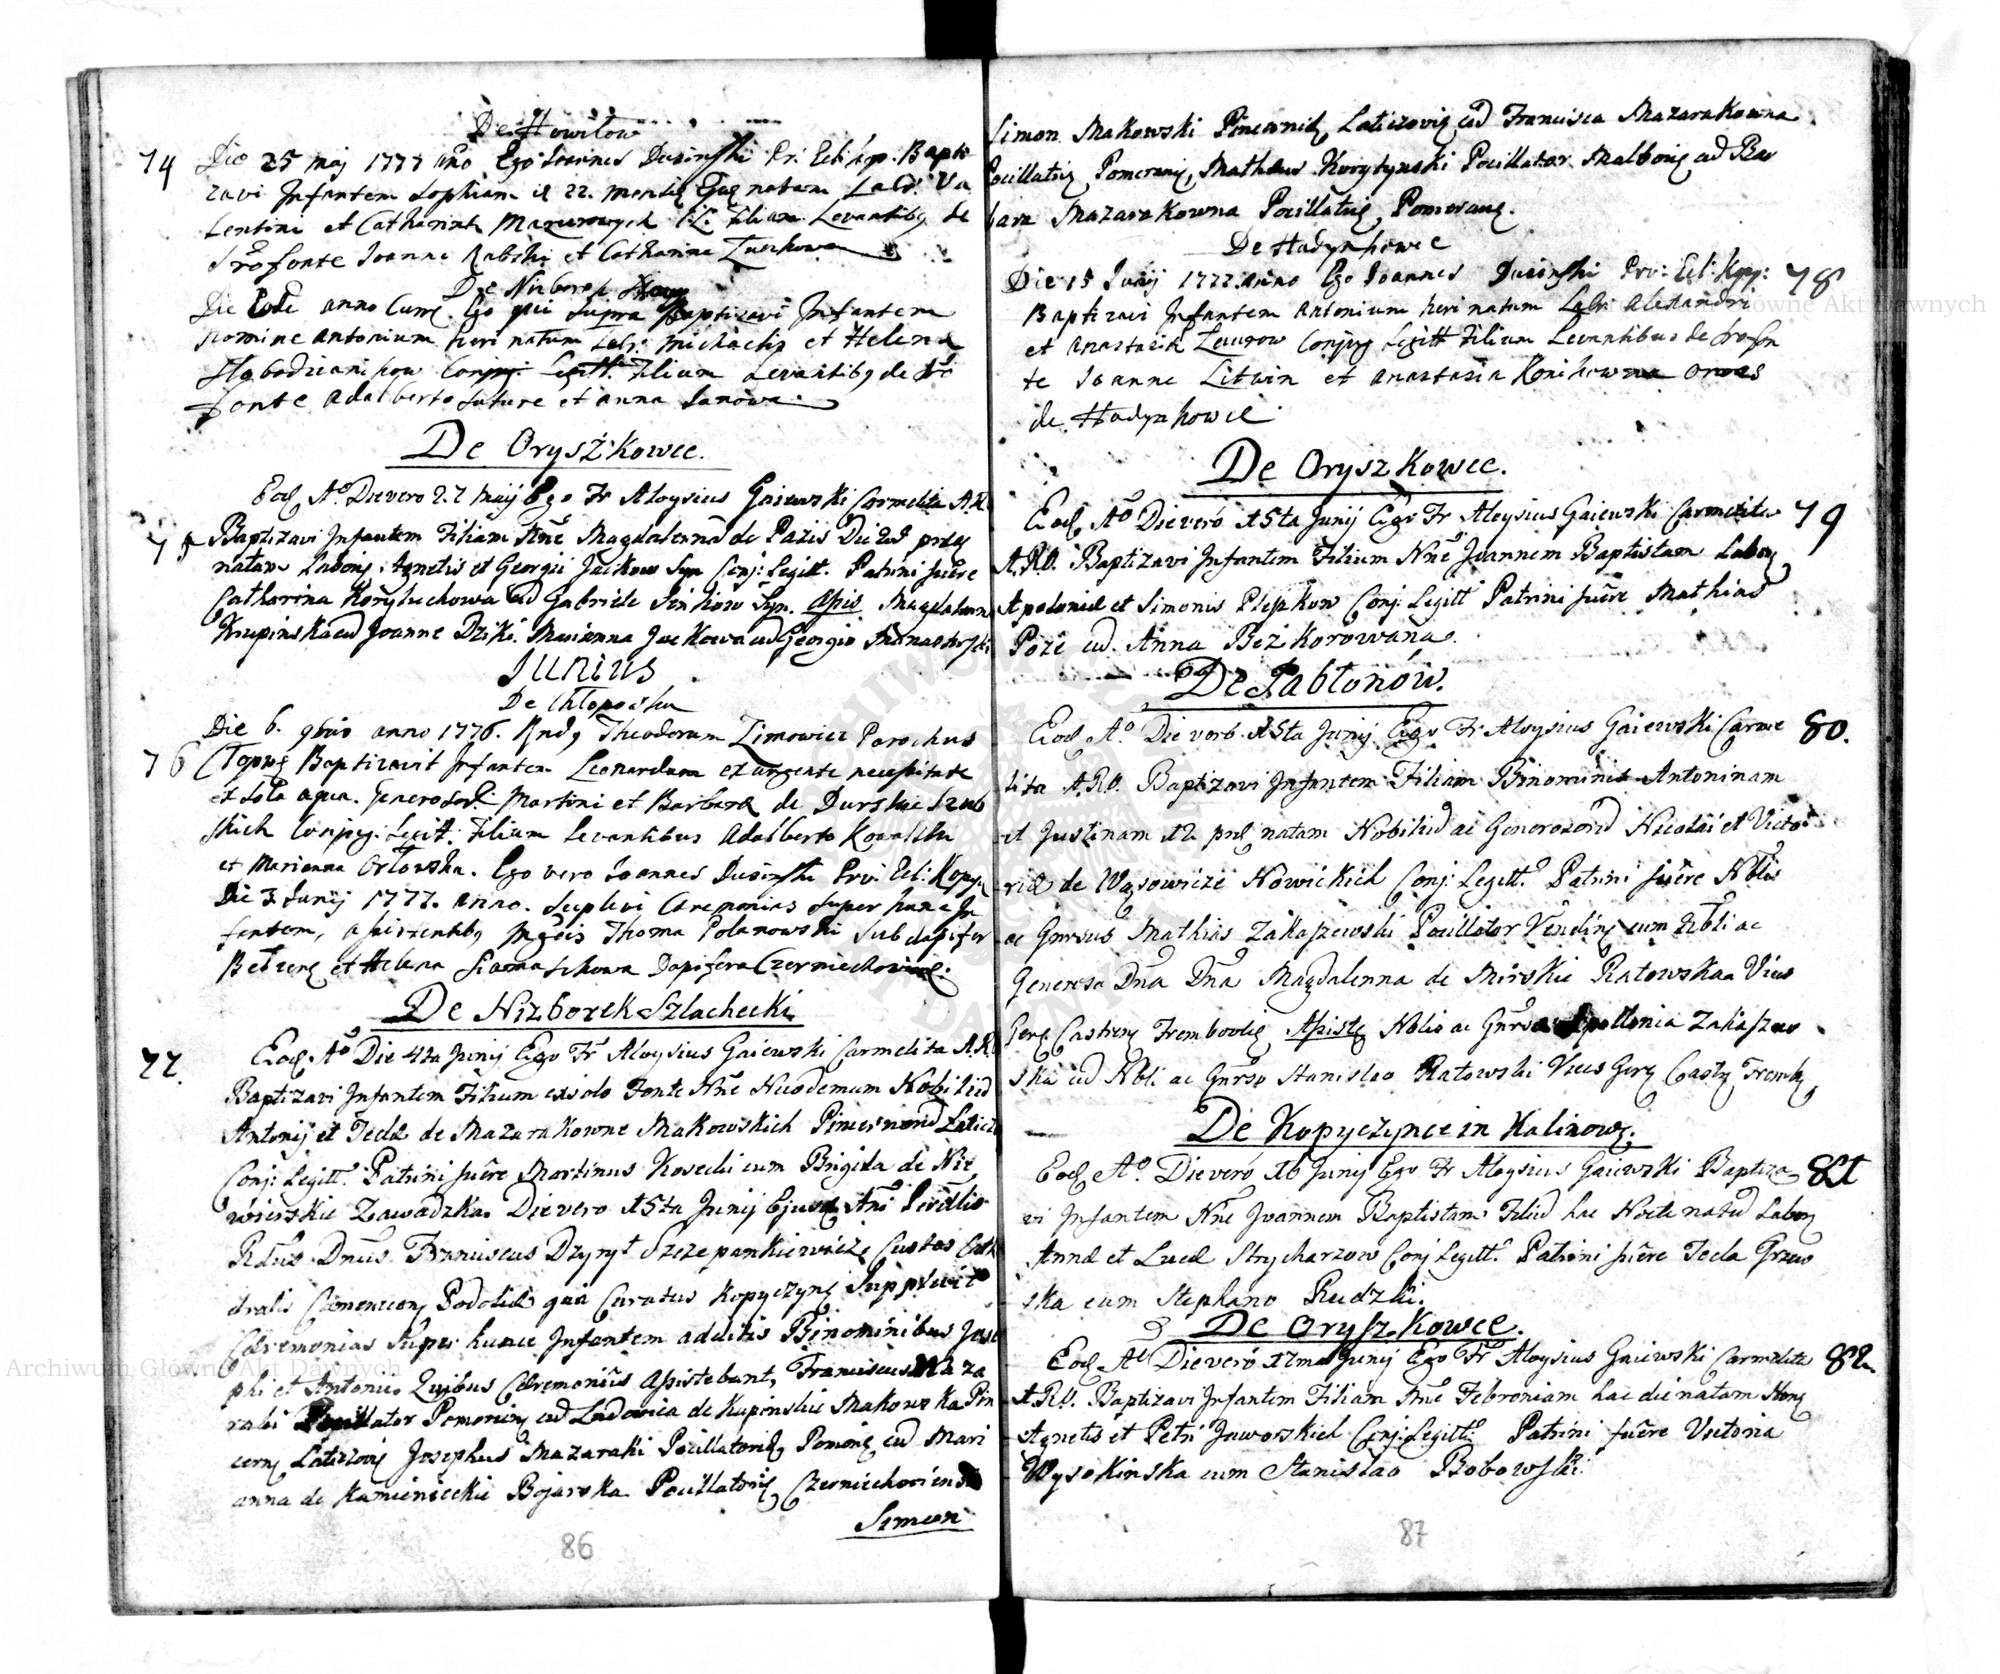 De Howilow
74 Die 25 maj 1777 año Ego Joannes Dusinski Pr: Ecl: kop. Bapti
zavi Infantem Sophiam 22. mensis natam Lab: Va
lentini et Catharinæ Mazurowych C. L. Filiam Levantibq de
Srofonte Joanne Rabski et Catharina
De Nizborek
Die Eode anno Curre. Ego qui supra Baptizavi Infantem
nomine Antonium heri natum Labr: Michaelis et Helenæ
Conjug: Legitt: Filium Levantibq de Sro
fonte Adalberto Sutore et Anna Sanowa.
De Oryszkowce.
Eod Aº Die vero 27 Maij Ego Fr Aloysius Gaiewski Carmelita A.R.
75 Baptizavi Infantem Filiam Nñe Magdalenam de Pazis
natam Laborq: Agnetis et Georgii Jackow Syn Conj: Legitt. Patrini fuêre
Catharina Koryluchowa cu Gabriele Sinkow Syn. Assis Magdalena
Krupinska cu Joanne Dziki. Marianna Jackowa cu Georgio
JUNIUS
De Chłopowka
Die 6. 9bris anno 1776. Rndq Theodorum Zimowicz Parochus
76 Baptizavit Infantem Leonardum ex urgente necessitate
ex sola aqua. Generosor: Martini et Barbaræ de Durskie Szub
skich Conjug: Legit: Filium levantibus Adalberto Kowalski
et Marianna Orłowska. Ego vero Joannes Dusinski Prv: Ecl: Kopy:
Die 3 Junij 1777. anno. Suplevi Ceremonias super hunc In
fantem, assistentibq Mgcis Thoma Polanowski Subdapifer
Bełzenq et Helena Siemaszkowa Dapifera Czerniechoviens.
De Nizborek Szlachecki
77. Eod Aº Die 4ta Junij Ego Fr Aloysius Gaiewski Carmelita A.R.
Baptizavi Infantem Filium ex solo Fonte Nñe Nicodemum Nobiliu
Antonij et Teclæ de Mazarakowne Makowskich Pincernoru Laticzo
Conj: Legitt. Patrini fuêre Martinus Kosecki cum Brigida de Nie
wierskie Zawadzka. Die vero 15ta Junij Ejusde Ani
Rdus Dnus Franciscus Dzyryt Szczepankiewicze Custos Cath
dralis Camenecenq Podoliæ qua Curatus Kopyczynq Supplevit
Cæremonias super hunce Infantem additis Binominibus Jose
phi et Antonii. Quibus Cæremoniis Assistebant, Franciscus Maza
raki Pocillator Pomeraniq cu Ludovica de Kupinskie Makowska Pin
cerq Laticzovq Josephus Mazaraki Pocillatoridq Pomerq cu Mari
anna de Kamienieckie Bojarska Pocillatoriq Czerniechoviensi
Simeon
86
Simon Makowski Pincernidq Laticzoviq cu Francisca Mazarakowna
Pocillatriq Pomeraniq, Matheus Korytynski Pocillator Malboriq cu Bar
bara Mazarakowna Pocillatriq Pomeraniq.
De Hadynkowce
Die 15 Junij 1777 anno Ego Joannes Dusinski Prv: Ecl: Kpy: 78
Baptizavi Infantem Antonium heri natum Labr: Alexandri
et Anastasiæ Laurow Conjug Legitt Filium Levantibus de Srofon
te Joanne Litwin et Anastasia Konikowna omnes
de Hadynkowce
De Oryszkowce.
Eod Aº Die veró 15ta Junij Ego Fr Aloysius Gaiewski Carmelita 79
A.R.O. Baptizavi Infantem Filium Nñe Joannem Baptistam Laborq
Apoloniæ et Simonis Pleskow Conj: Legitt Patrini fuêre Mathias
Poże cu Anna Beżkorowana.
De Jabłonów.
Eod Aº Die veró 15ta Junij Ego Fr Aloysius Gaiewski Carme 80.
lita A.R.O. Baptizavi Infantem Filiam Binominis Antoninam
et Justinam 12 præ natam Nobiliu ac Generosoru Nicolai et Victo
riæ de Wąsowicze Nowickich Conj: Legitt. Patrini fuêre Nblis
ac Gnrsus Mathias Zakaszewski Pocillator Vendinq cum Nbli ac
Generosa Dna Dna Magdalenna de Mirskie Ratowska Vices
Gerq Castrenq Trembovliq Assistq Nblis ac Gnrsa Apollonia Zakaszew
ska cu Nbli ac Gnrso Stanislao Ratowski Vices Gerq Castrq Trembq
De Kopyczynce in Kalinowq.
Eod Aº. Die veró 16 Junij Ego Fr Aloysius Gaiewski Baptiza 81
vi Infantem Nñe Joannem Baptistam Filiu hac Nocte natu Laborq
Annæ et Lucæ Strycharzow Conj Legitt. Patrini fuêre Tecla Grzew
ska cum Stephano Rudzki.
De Oryszkowce.
Eod Aº Die veró 17ma Junij Ego Fr Aloysius Gaiewski Carmelita 82
A.R.O. Baptizavi Infantem Filiam Nñe Febroniam hac die natam Honq
Agnetis et Petri Jaworskich Conj: Legitt. Patrini fuêre Victoria
Wysokinska cum Stanislao Bobowski.
87
Archiwum Główne Akt Dawnych